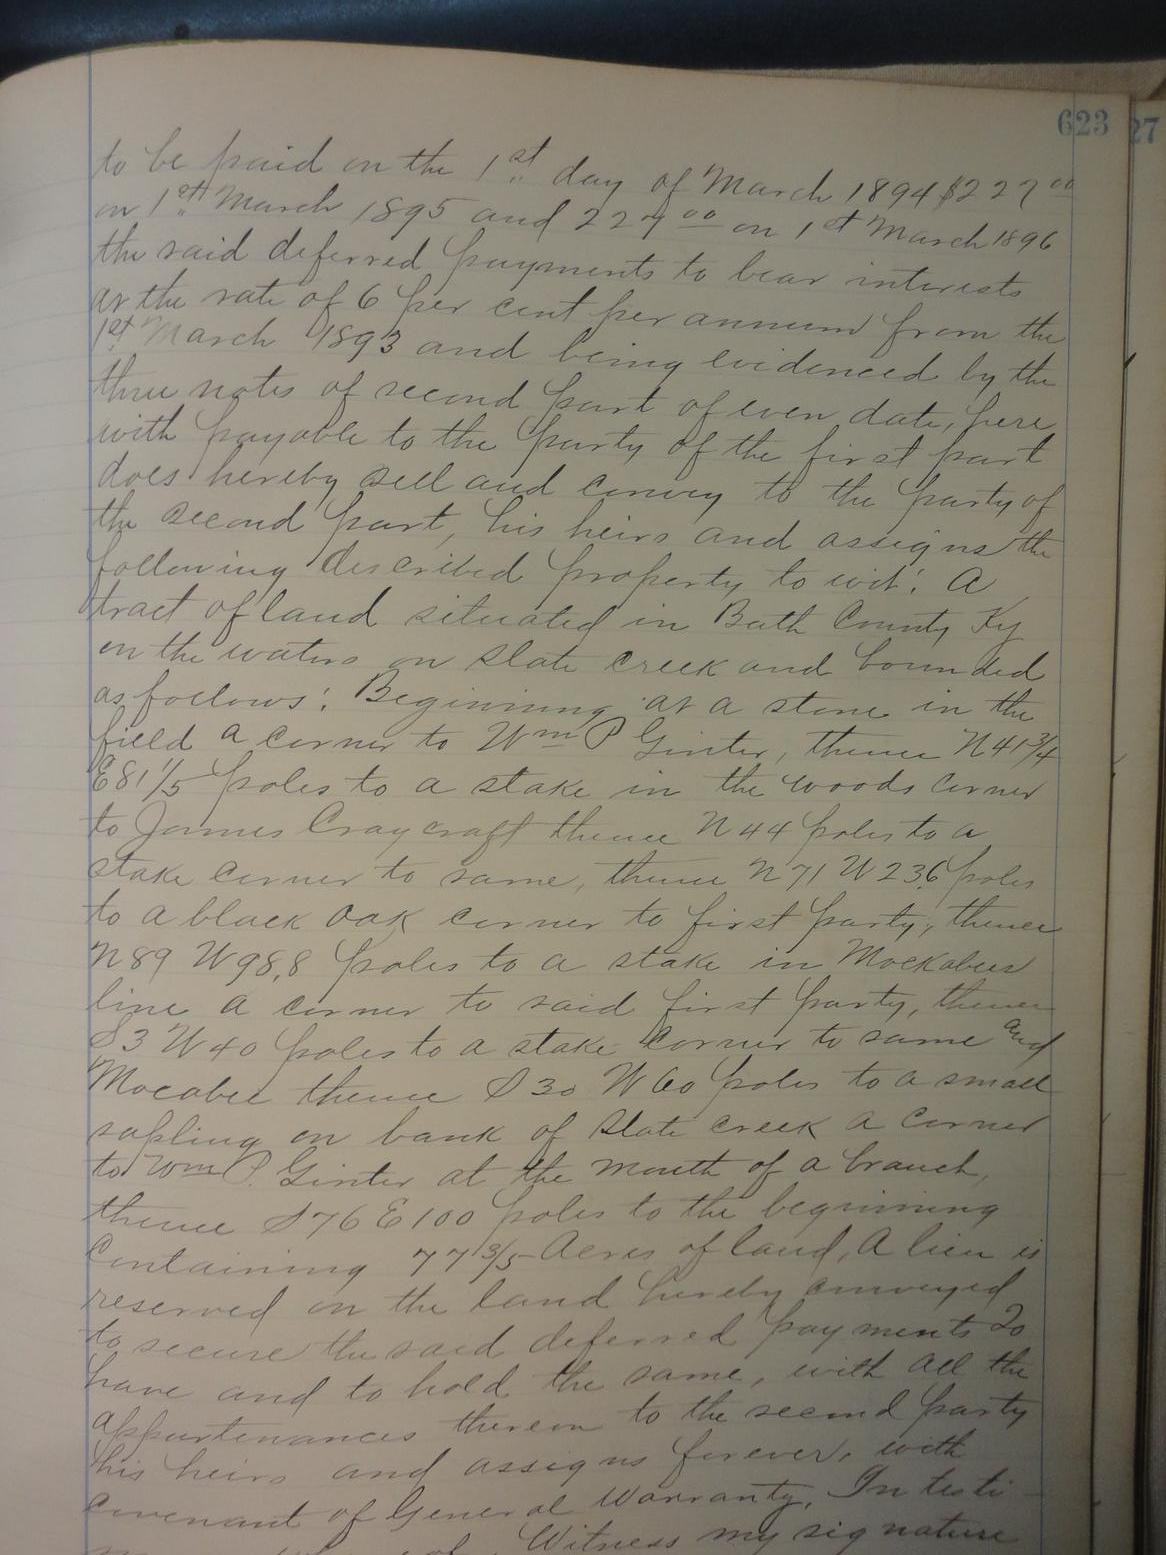 623
27
to be paid on the 1st day of March 1894 $227 00
on 1st March 1895 and 227 00 on 1st March 1896
the said deferred payments to bear interests
at the rate of 6 per cent per annum from the
1st March 1893 and being evidenced by the
three notes of second part of even date, here
with payable to the party of the first part
does hereby sell and convey to the party of
the second part, his heirs and assigns the
following described property to wit: A
tract of land situated in Bath County Ky
on the waters on Slate Creek and bounded
as follows: Beginning at a stone in the
field a corner to Wm P Ginter, thence N 41 3/4
E 81 1/5 poles to a stake in the woods corner
to James Craycraft thence N 44 poles to a
stake corner to same, thence N 71 W 23.6 poles
to a black oak corner to first party, thence
N 89 W 98.8 poles to a stake in Mockabees
line a corner to said first party, thence
S 3 W 40 poles to a stake corner to same and
Mocabee thence S 30 W 60 poles to a small
sapling on bank of Slate Creek a corner
to Wm P. Ginter at the mouth of a branch,
thence S 76 E 100 poles to the beginning
Containing 77 3/5 Acres of land, A lien is
reserved on the land hereby conveyed
to secure the said deferred payments To
have and to hold the same, with all the
appurtenances thereon to the second party
his heirs and assigns forever, with
covenant of General Warranty, In testi-
Witness my signature